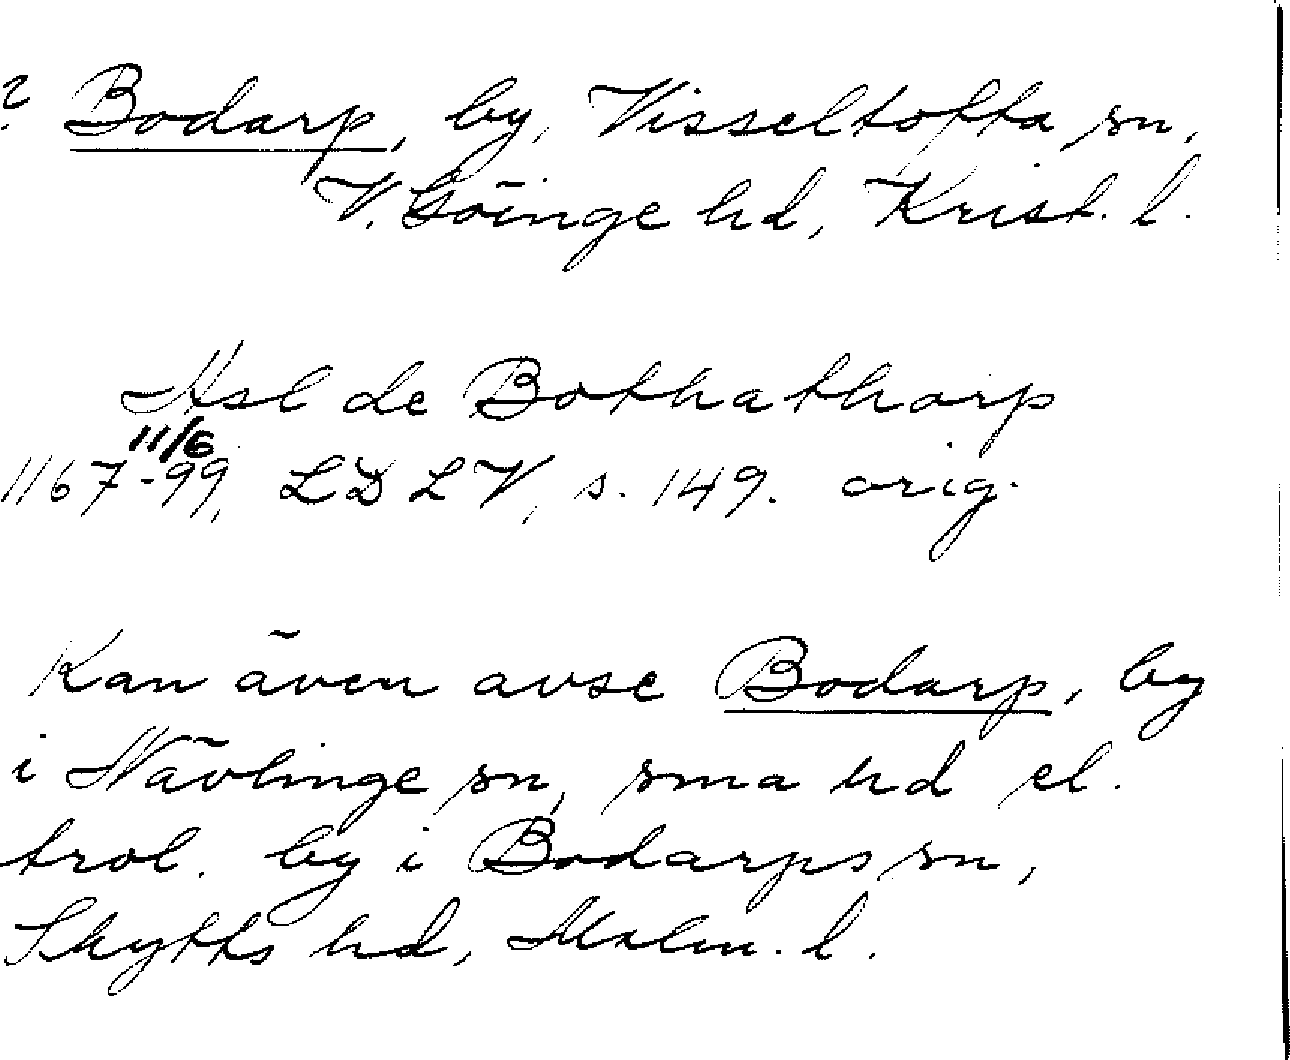 ? Bodarp, by, Visseltofta sn,
V. Göinge hd, Krist. l.
Asl de Bothathorp
11/6
1167-99, LDLV, s. 149. orig.
Kan även avse Bodarp, by
i Nävlinge sn, sma hd el.
trol. by i Bodarps sn,
Skytts hd, Malm. l.